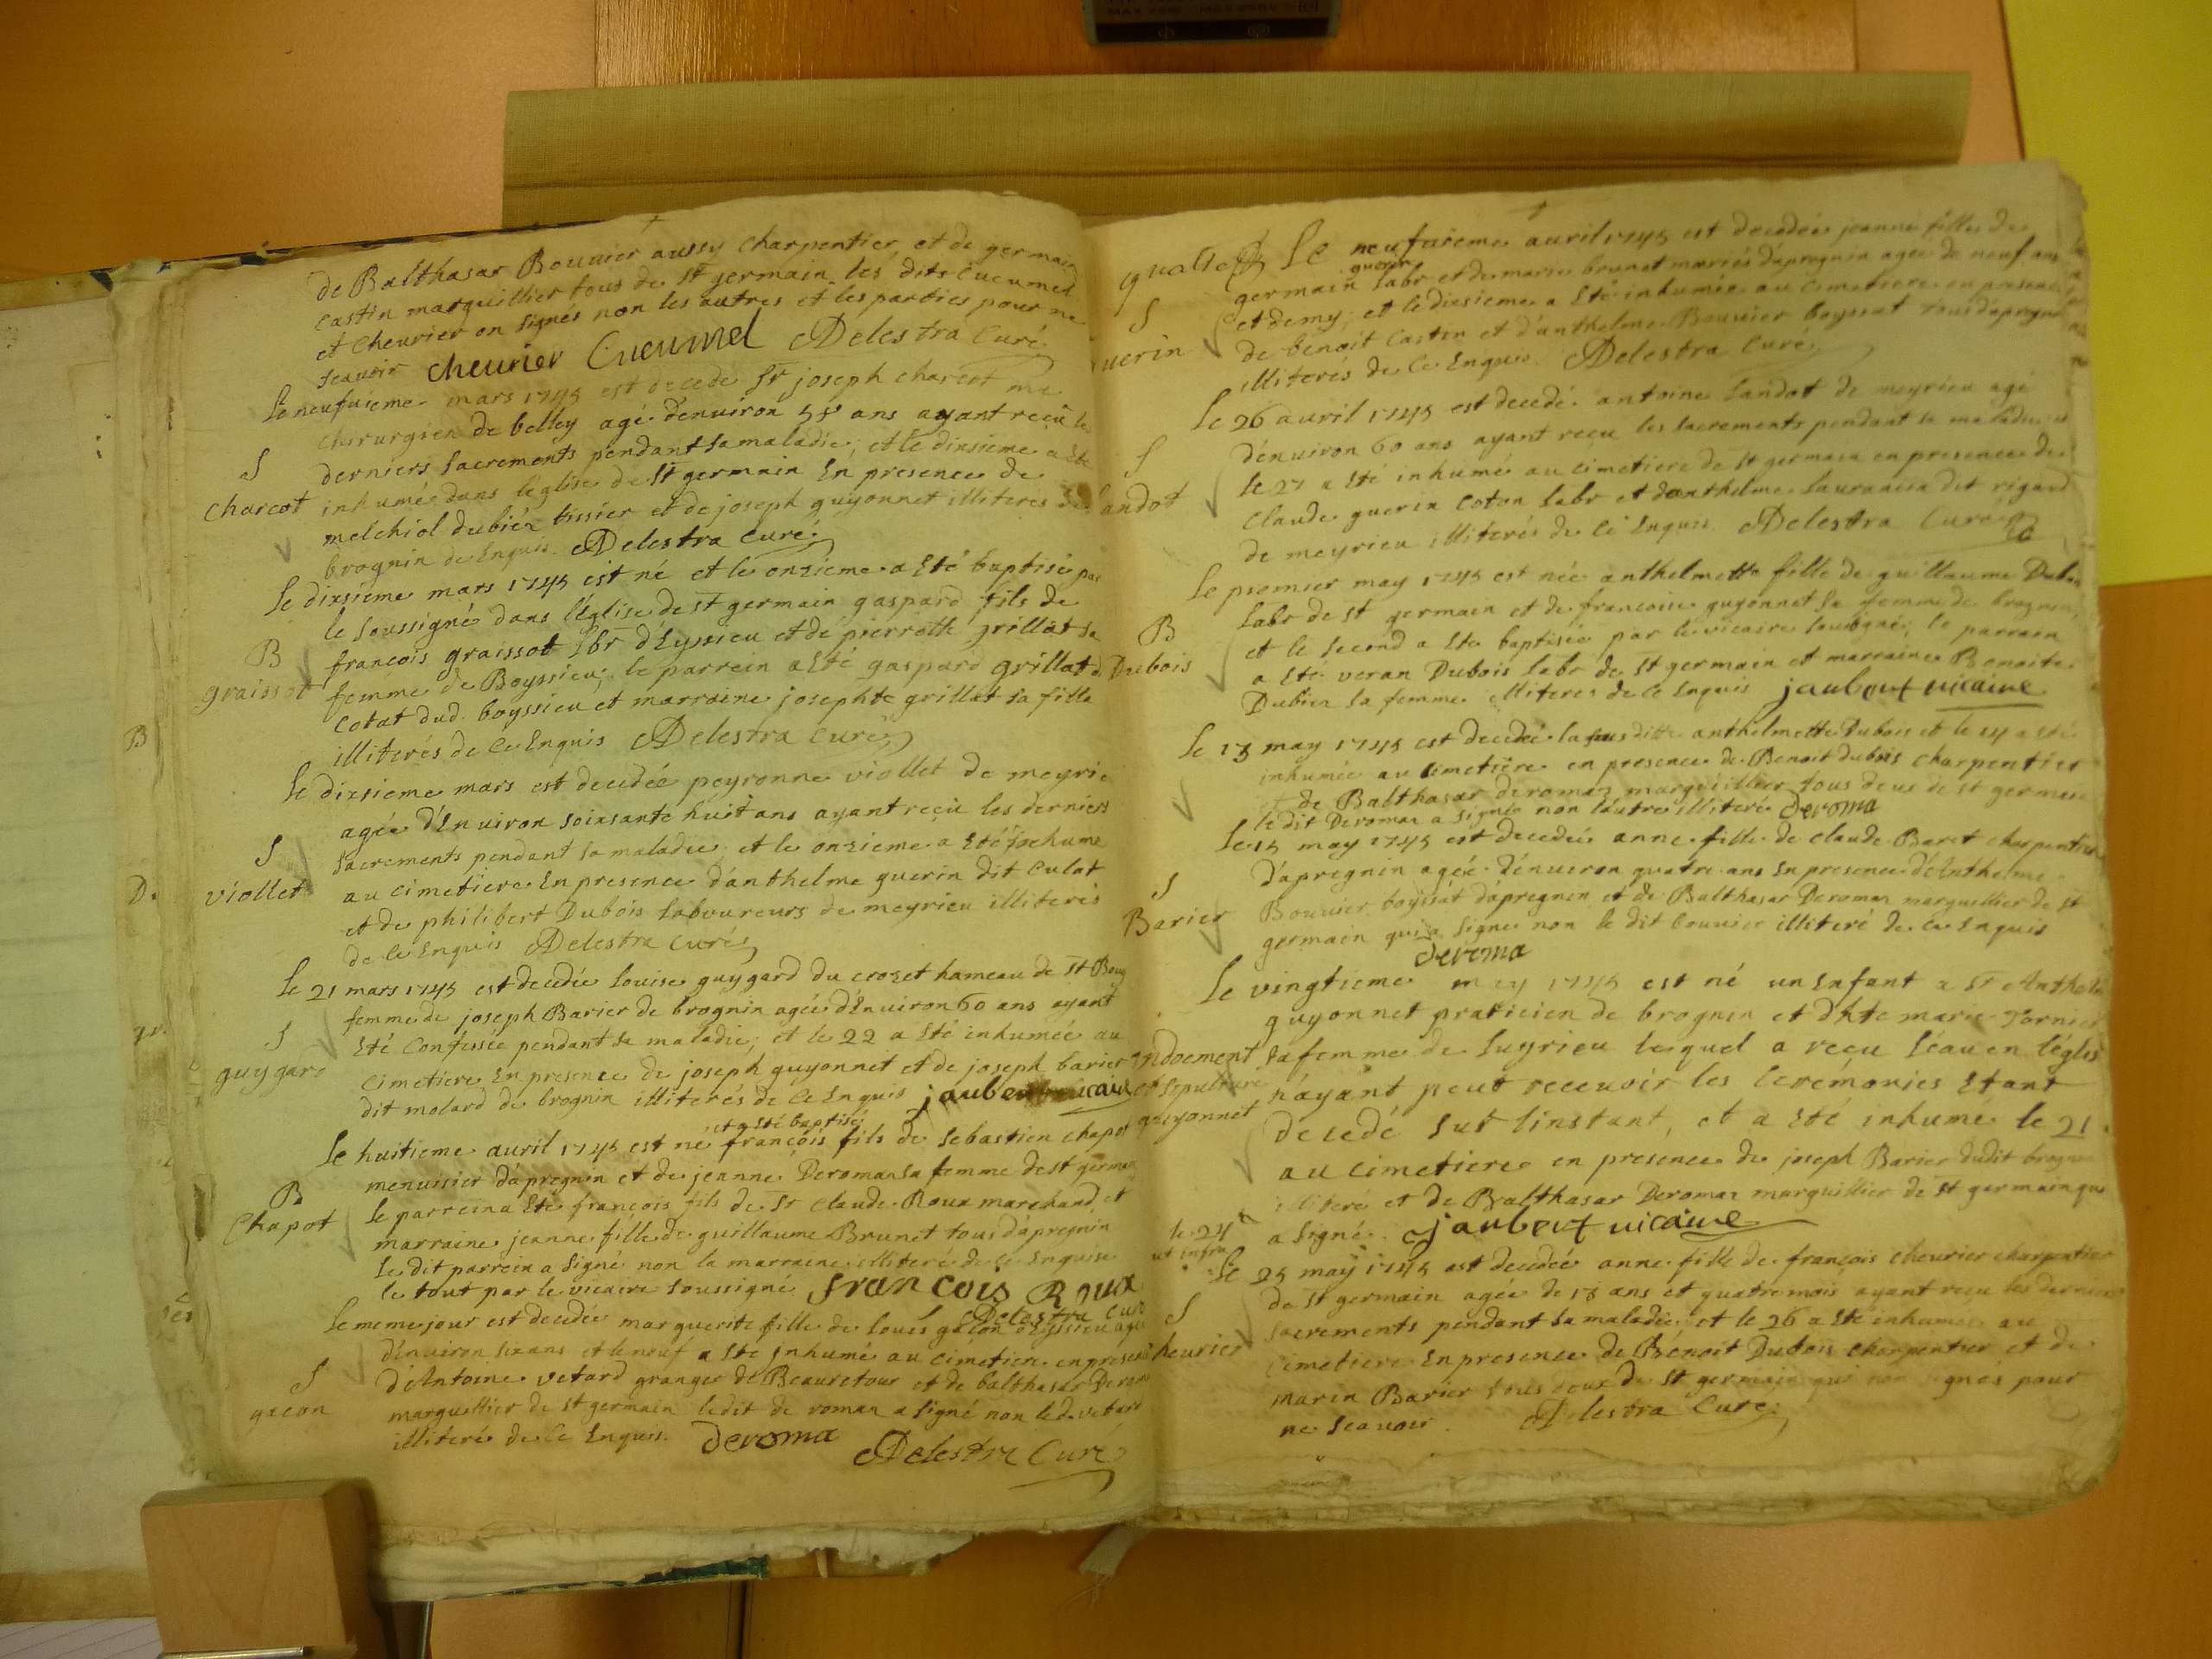 de Balthasar Bouvier aussy charpentier, et de germain
castin marguillier tous de st germain, les dits Cueumel
et Cheurier on signés non les autres et les parties pour ne
scavoir cheurier Cueumel Delestra Curé
Le neufuieme mars 1745 est decedé Sr joseph charcot me
chirurgien de belley agé d'enuiron 55 ans ayant reçû les
derniers sacrements pendant sa maladie, et le dixsieme a été
S
Charcot
inhumé dans l'église de st germain En presence de
melchiol dubien tissier et de joseph guyonnet illiteres de
brognin de Enquis. Delestra Curé
Le dixsieme mars 1745 est né et le onzieme a Eté baptisé par
le soussigné dans l'Église de st germain gaspard fils de
B
graissot
francois graissot Lbr d'Eyssieu et de pierrotte grillat sa
femme de Boyssieu; le parrein a Eté gaspard grillat d.
Cotat dud. boyssieu et marraine josephte grillat sa fille
illiterés de Ce Enquis Delestra Curé
Le dixsieme mars est decedée peyronne viollet de meyrie
agée d'Enuiron soixsante huit ans ayant reçû les derniers
S
viollet
sacrements pendant sa maladie, et le onzieme a Eté inhumé
au cimetiere En presence d'anthelme guerin dit Culat
et de philibert Dubois laboureurs de meyrieu illiterés
de Ce Enquis Delestra Curé
Le 21 mars 1745 est decedée Louise guygard du crozet hameau de st Boug
femme de joseph Barier de brognin agée d'Enuiron 60 ans ayant
S
guygard
Eté Confessée pendant sa maladie; et le 22 a Eté inhumée au
cimetiere En presence de joseph guyonnet et de joseph barier
dit molard de brognin illiterés de Ce Enquis jaubert vicaire
et a Eté baptisé
Le huitieme auril 1745 est né françois fils de Sebastien chapot
menuisier d'apregnin et de jeanne Deroman sa femme de st germain
B
Chapot
le parrein a Eté françois fils de Sr Claude Roux marchand, et
marraine jeanne fille de guillaume Brunet tous d'apregnin
Le dit parrein a signé non la marraine illiteré de Ce Enquise
le tout par le vicaire soussigné francois Roux
Delestra Curé
Le meme jour est decedée marguerite fille de Louis gacon d'Eyssieu agée
d'enuiron six ans et le neuf a Eté Inhumé au cimetiere en présence
S
gacon
d'Antoine vetard granger de Beauretour et de balthasar Deroman
marguillier de st germain ledit de roman a signé non led. vetard
illiteré de Ce Enquis. Deroma
Delestra Curé
Le neufuieme auril 1745 est decedée jeanne fille de
guerin
germain labr et de marie brunet mariés d'apregnin agée de neuf ans
S
uerin
et demy; et le dixsieme a Eté inhumée au cimetiere en presence
de benoit Castin et d'anthelme Bouuier boyssat tous d'apregnin
illiterés de Ce Enquis. Delestra Curé
Le 26 auril 1745 est decedé antoine Landot de meyrieu agé
S
andot
d'enuiron 60 ans ayant reçu les sacrements pendant sa maladie et
le 27 a Eté inhumé au cimetiere de st germain en presence de
Claude guerin Coton labr et d'anthelme dit rigard
de meyrieu illiterés de Ce Enquis Delestra Curé
Le premier may 1745 est née anthelmette fille de guillaume Dubois
labr de st germain et de francoise guyonnet sa femme de brognin,
B
Dubois
et le second a Eté baptisée par le vicaire soussigné; le parrain
a Eté veran Dubois labr de st germain et marraine Benoite
Dubien sa femme illiteres de Ce Enquis jaubert vicaire
Le 13 may 1745 est decedée la susditte anthelmette Dubois et le 14 a Eté
inhumée au cimetiere en presence de Benoit dubois charpentier
et de Balthasar deroman marguillier tous deux de st germain
le dit Deroman a signé non l'autre illiteré Deroma
Le 15 may 1745 est decedée anne fille de claude Baret charpentier
S
Barier
d'apregnin agée d'enuiron quatre ans En presence d'Anthelme
Bouuier boyssat d'apregnin et de Balthasar Deroman marguillier de st
germain qui a signé non le dit bouuier illiteré de Ce Enquis
Deroma
Le vingtieme may 1745 est né un Enfant a Sr Anthelme
guyonnet praticien de brognin et d'hte marie Tornier
ondoement
et sepulture
guyonnet
sa femme de Luyrieu lequel a reçu l'eau en l'église
n'ayant peut receuoir les Ceremonies Etant
decedé sur l'instant, et a Eté inhumé le 21
au cimetiere en presence de joseph Barier dudit brognin
illiteré et de Balthasar Deroman marguillier de st germain qui
a signé. jaubert vicaire
le 24
ut infra
Le 25 may 1745 est decedée anne fille de françois cheurier charpentier
de st germain agée de 13 ans et quatre mois ayant reçu les derniers
S
heurier
sacrements pendant sa maladie, et le 26 a Eté inhumée au
cimetiere En presence de Bénoit Dubois charpentier et de
marin Barier tous deux de st germain qui non signés pour
ne scauoir. Delestra Curé